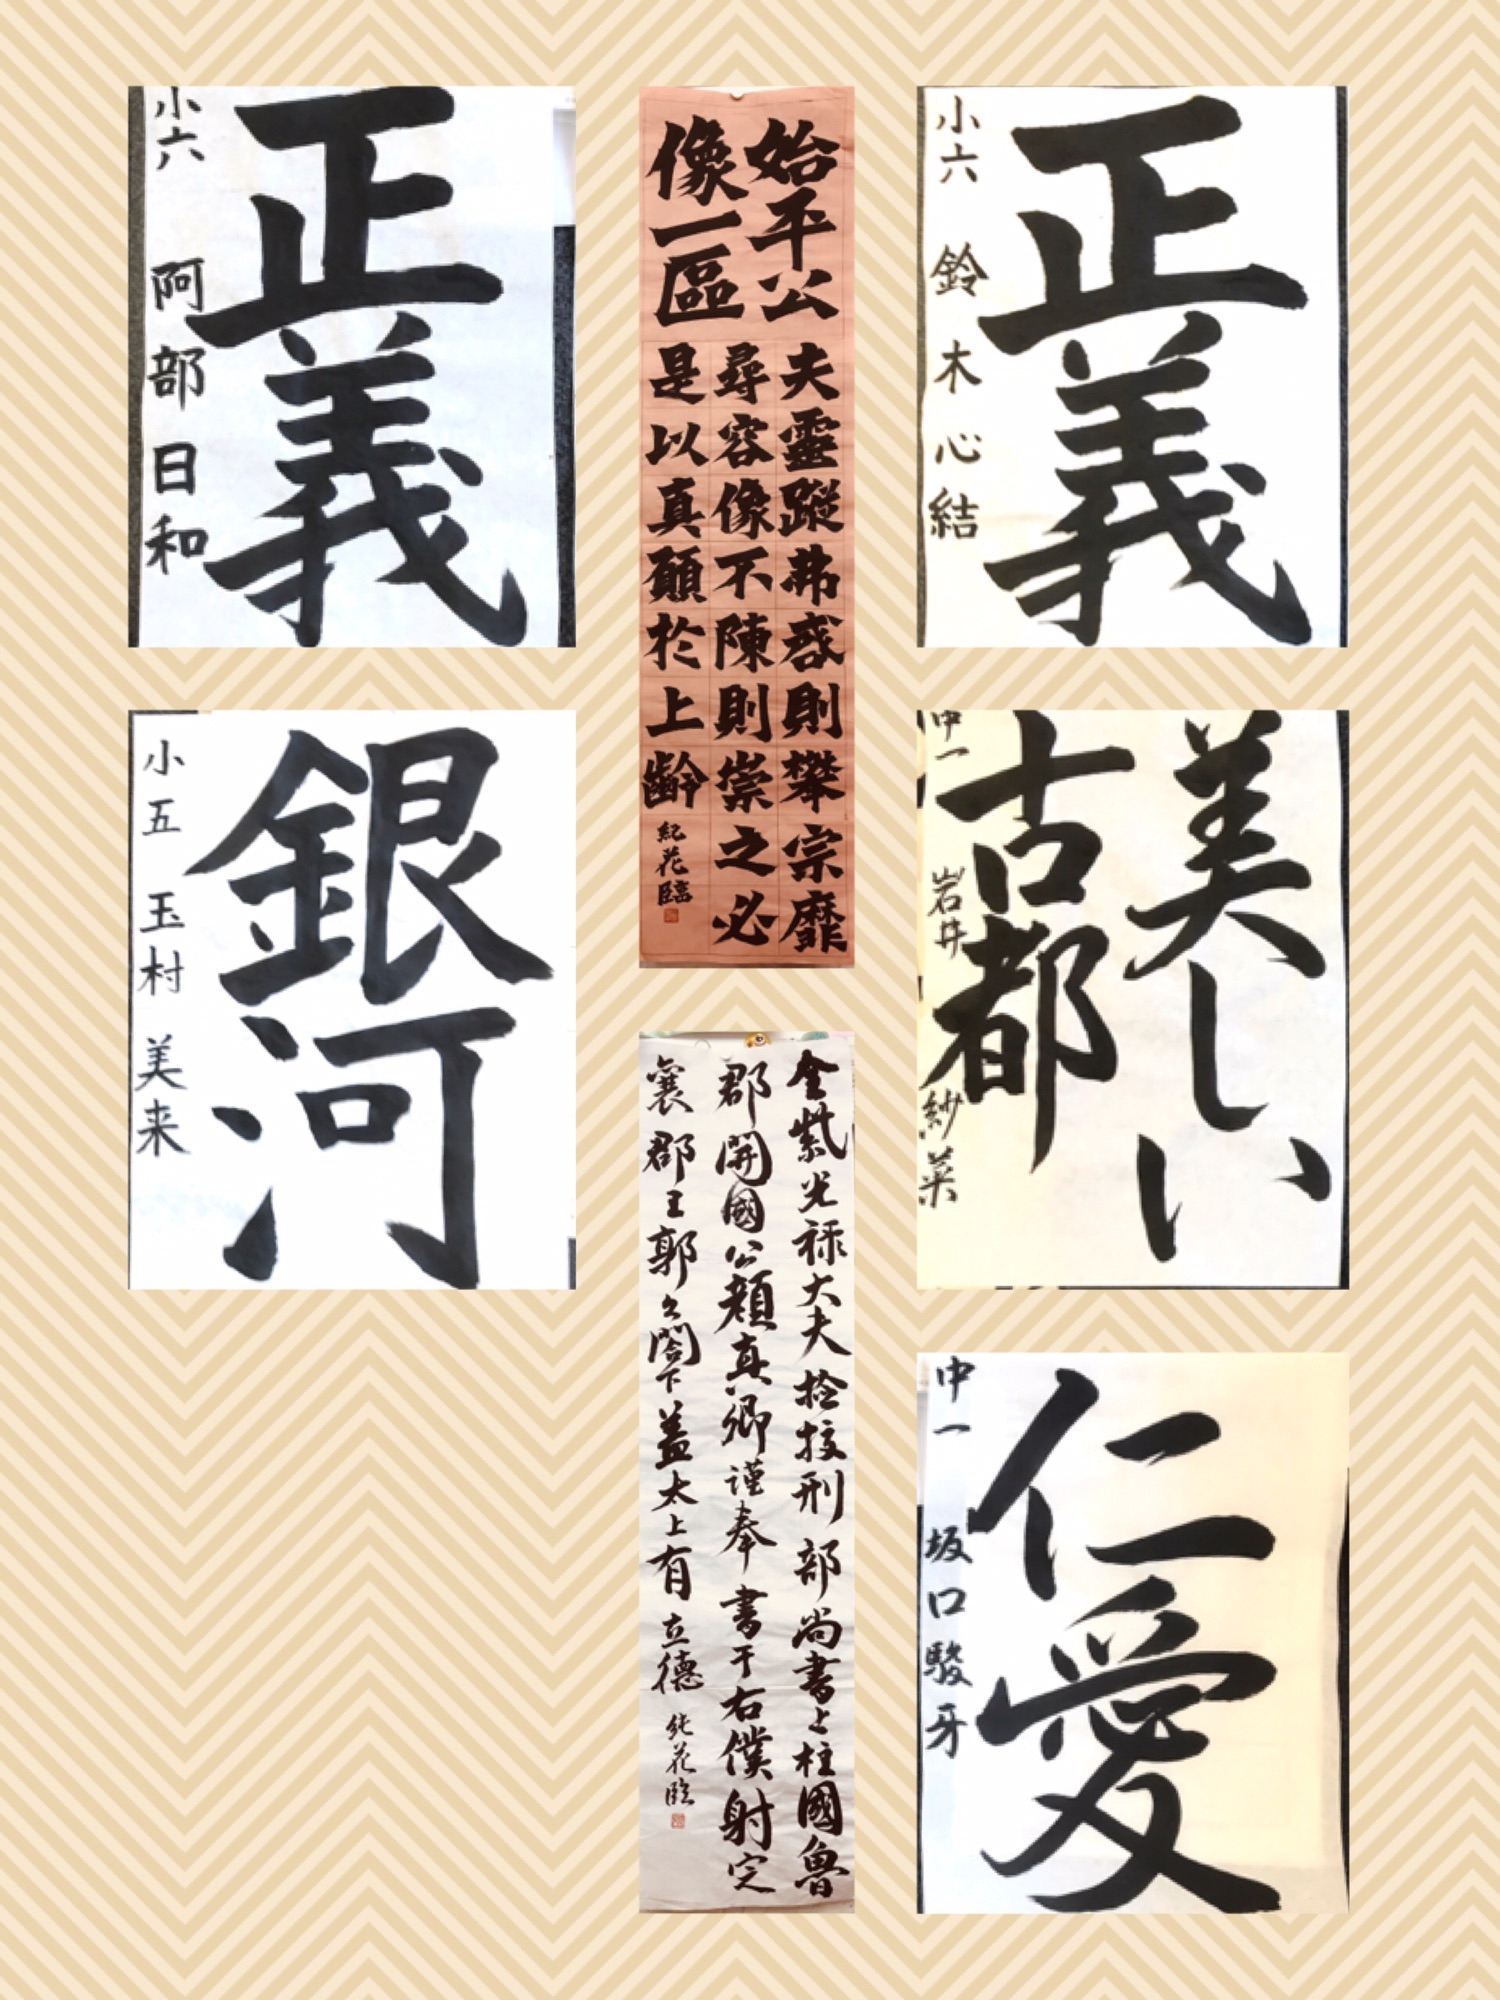 正義
小六 阿部日和
始平公
像一區
夫靈蹤弗啓則攀宗靡
尋容像不陳則崇之必
是以真顏於上齡
紀花臨
正義
小六 鈴木心結
銀河
小五 玉村美来
美しい
古都
中一 岩井紗菜
金紫光祿大夫撿挍刑部尚書上柱國魯
郡開國公顏真卿謹奉書于右僕射定
襄郡王郭公閤下蓋太上有立德
純花臨
仁愛
中一 坂口駿牙